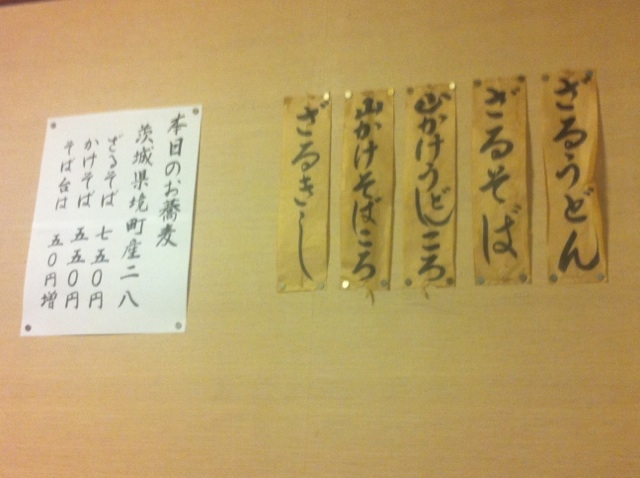 ざるうどん
ざるそば
山かけうどんころ
山かけそばころ
ざるきし
本日のお蕎麦
茨城県境町産二八
ざるそば 七五〇円
かけそば 五五〇円
そば台は 五〇円増